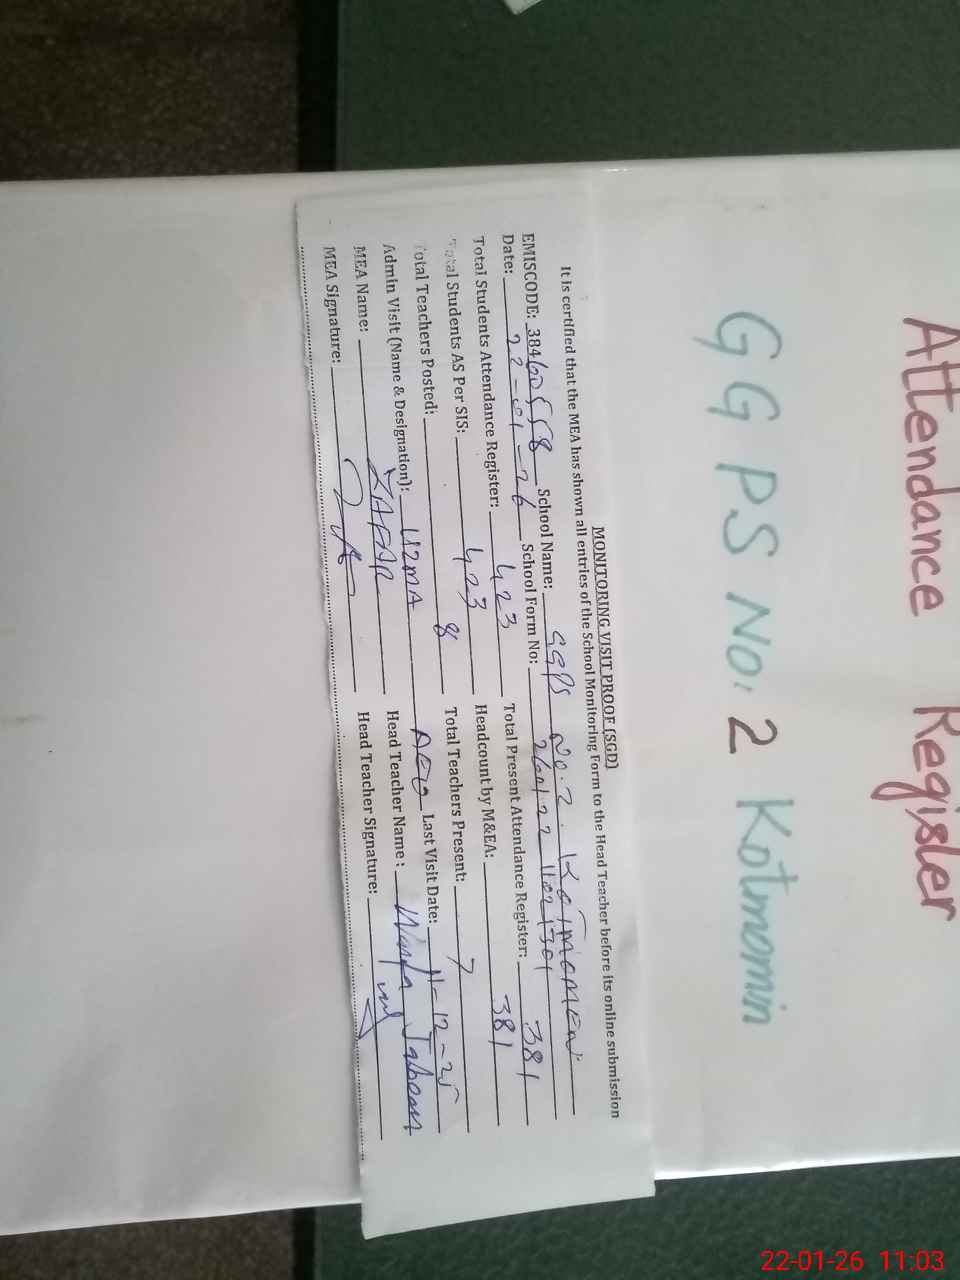 Attendance Register
GGPS No: 2 Kotmomin
MONITORING VISIT PROOF (SGD)
It is certified that the MEA has shown all entries of the School Monitoring Form to the Head Teacher before its online submission
EMISCODE: 38460558 School Name: GGPS No. 2 KOTMOMEN
Date: 22-01-26 School Form No:
Total Students Attendance Register: 423 Total Present Attendance Register: 381
Total Students AS Per SIS: 423 Headcount by M&EA: 381
Total Teachers Posted: 8 Total Teachers Present: 7
Admin Visit (Name & Designation): UZMA AEO Last Visit Date: 11-12-25
MEA Name: ZAFAR Head Teacher Name:
MEA Signature: Head Teacher Signature:
22-01-26 11:03